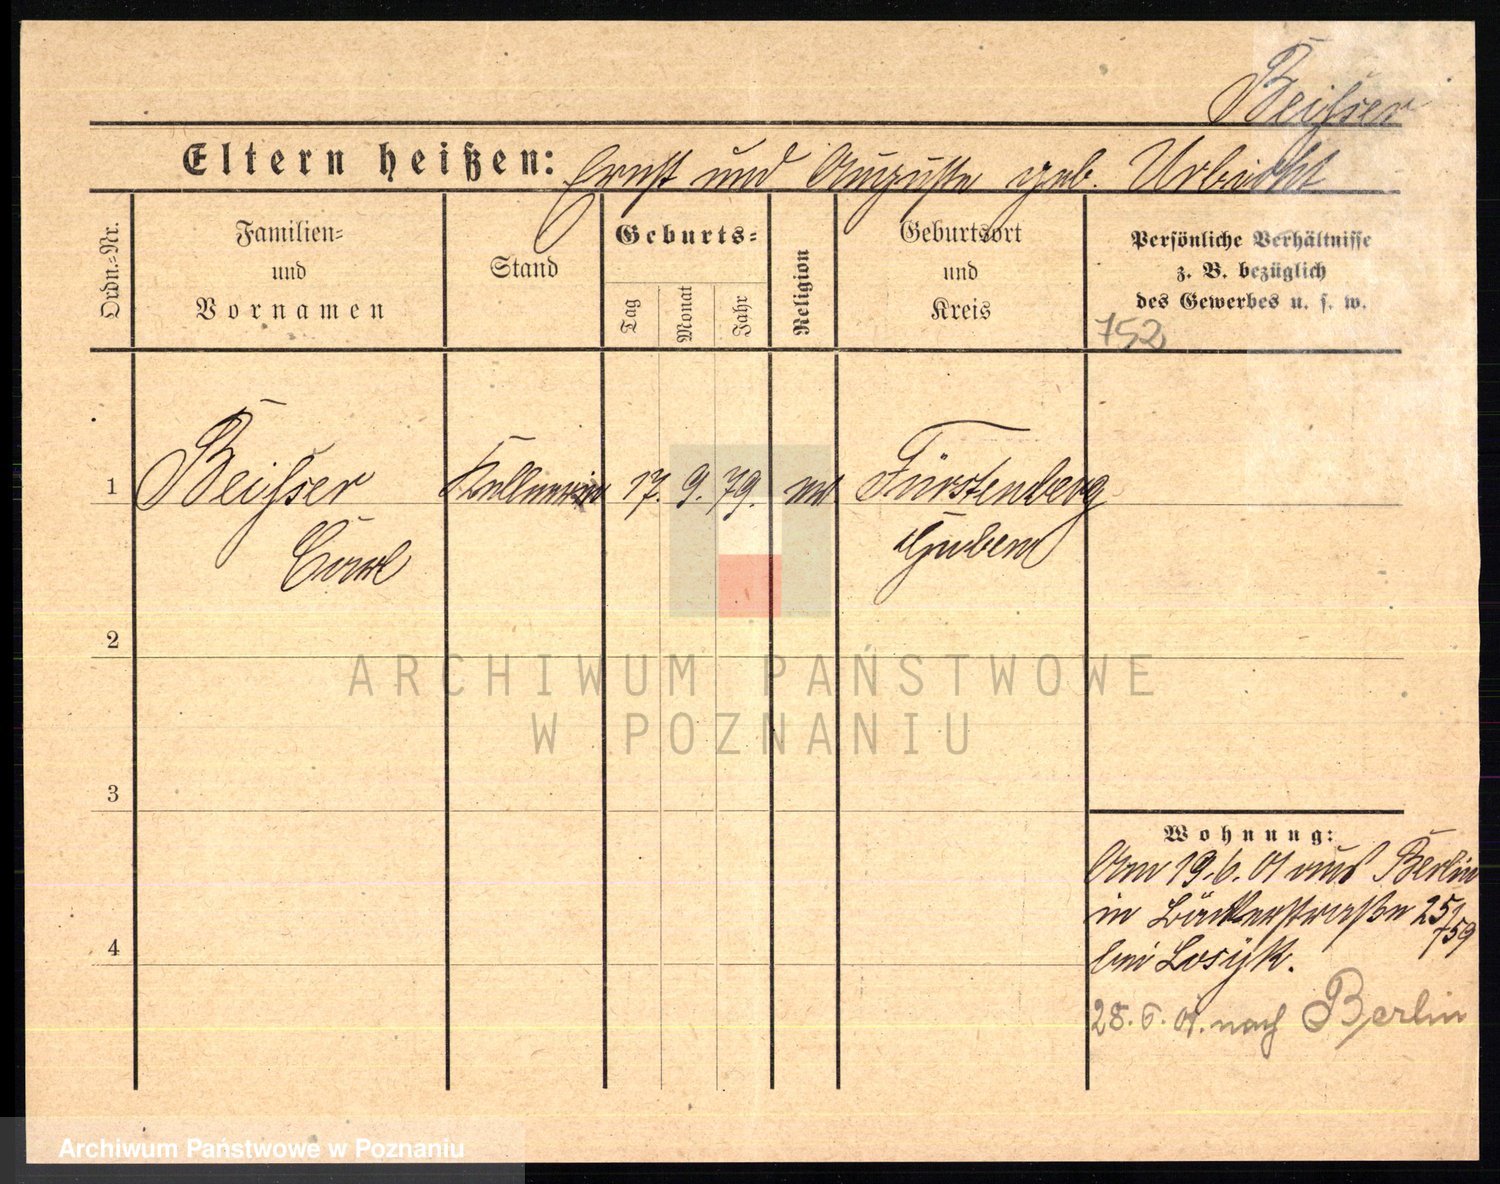 Beihser
Eltern heißen: Ernst und Auguste geb. Urbicht
Ordn.-Nr.
Familien-
und
Vornamen
Stand
Geburts-
Tag
Monat
Jahr
Religion
Geburtsort
und
Kreis
Persönliche Verhältnisse
z. B. bezüglich
des Gewerbes u. s. w.
752
1 Beihser Kellnerin 17. 9. 79. Fürstenberg
Guben
2
3
4
Wohnung:
Am 19.6.01 aus Berlin
in Bäckerstraße 25/
759
bei Losyk.
28.6.01. nach Berlin
ARCHIWUM PAŃSTWOWE
W POZNANIU
Archiwum Państwowe w Poznaniu